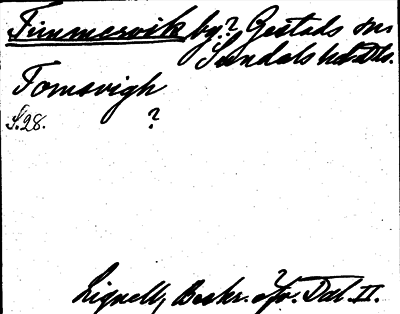 Timmervik by? Gestads sn
Sundals hd Dls.
Tomsvigh
S. 28. ?
Lignell, Beskr. öfv. Dal. II.